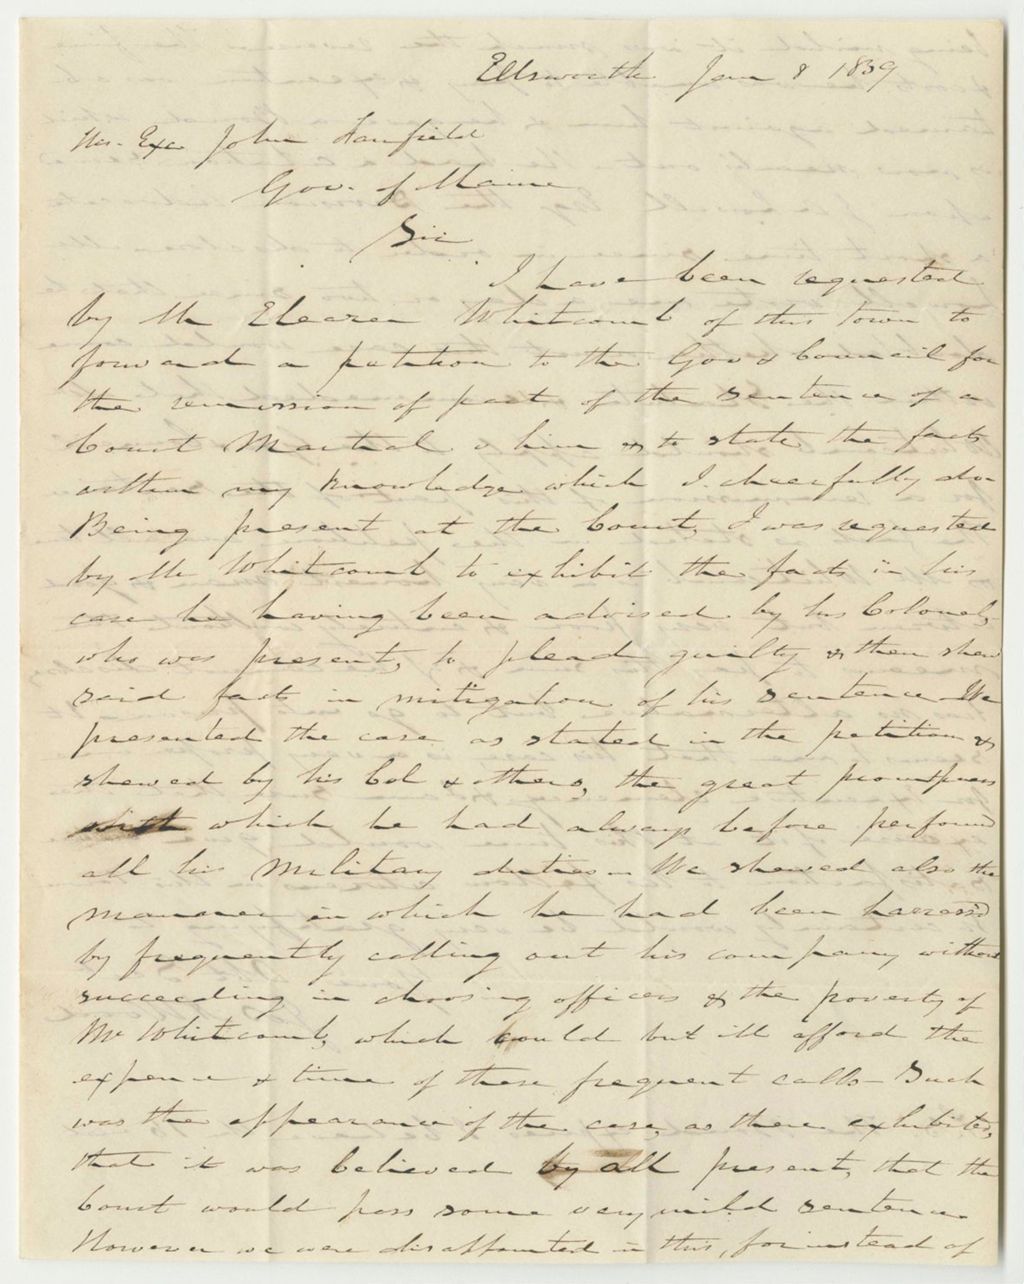 Ellsworth Jan 8 1839
His. Exc John Fairfield
Gov. of Maine
Sir
I have been requested
by Mr Eleazer Whitcomb of this town to
forward a petition to the Gov & Council for
the remission of part of the sentence of a
Court Martial & him & to state the facts
within my knowledge which I cheerfully do-
Being present at the Court, I was requested
by Mr Whitcomb to exhibit the facts in his
case he having been advised by his Colonel,
who was present, to plead guilty & then shew
said facts in mitigation of his sentence We
presented the case as stated in the petition &
shewed by his Col & others, the great promptness
with which he had always before perform'd
all his Military duties- We shewed also the
manner in which he had been harrass'd
by frequently calling out his company without
succeeding in choosing officers & the poverty of
Mr Whitcomb, which could but ill afford the
expence & time of these frequent calls- Such
was the appearance of the case, as there exhibited,
that it was believed by all present, that the
Court would pass some very mild sentence
However we were disappointed in this, for instead of